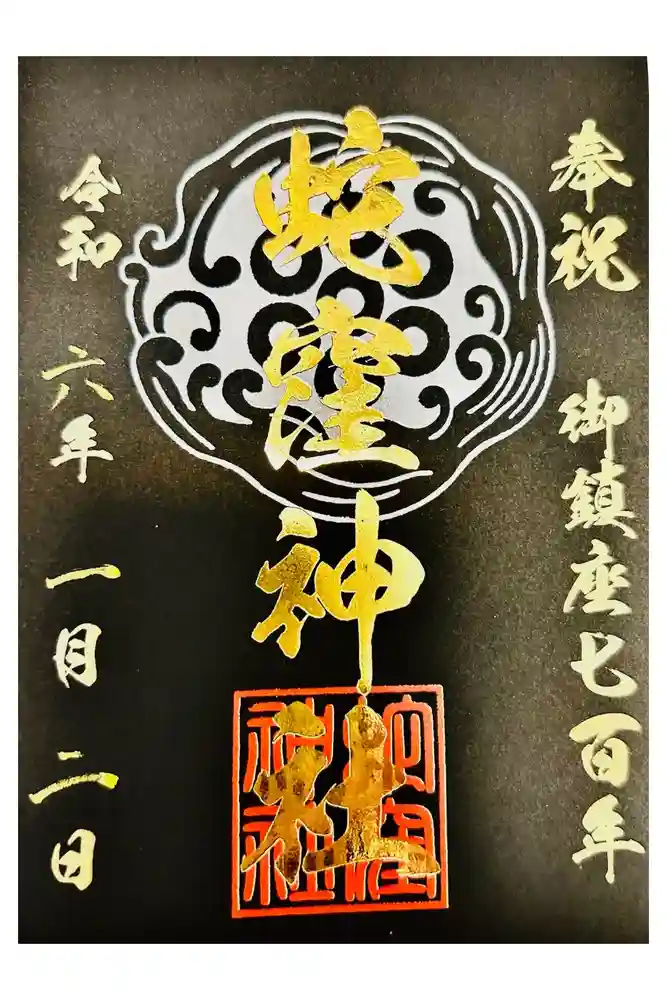 奉祝 御鎮座七百年
蛇窪神社
蛇窪神社
令和六年一月二日